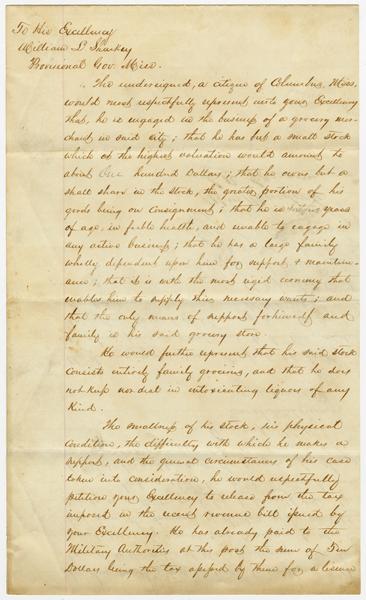 To His Excellency
William L Sharkey
Provisional Gov. Miss.
The undersigned, a citizen of Columbus, Miss,
would most respectfully represent unto your Excellency
that, he is engaged in the business of a grocery mer-
chant in said city; that he has but a small stock
which at the highest valuation would amount to
about hundred Dollars; that he owns but a
small share in the stock, the greater portion of his
goods being on consignment; that he is years
of age, in feeble health, and unable to engage in
any active business; that he has a large family
wholly dependent upon him for support & mainten-
ance; that it is with the most rigid economy that
enables him to supply their necessary wants; and
that the only means of support for himself and
family is his said grocery store.
He would further represent that his said stock
consists entirely family groceries, and that he does
not keep nor deal in intoxicating liquors of any
kind.
The smallness of his stock, his physical
condition, the difficulty with which he makes a
support, and the general circumstances of his case
taken into consideration, he would respectfully
petition your Excellency to release from the tax
imposed in the recent revenue bill issued by
your Excellency. He has already paid to the
Military Authorities at this post the sum of Ten
Dollars being the tax assessed by them for a license